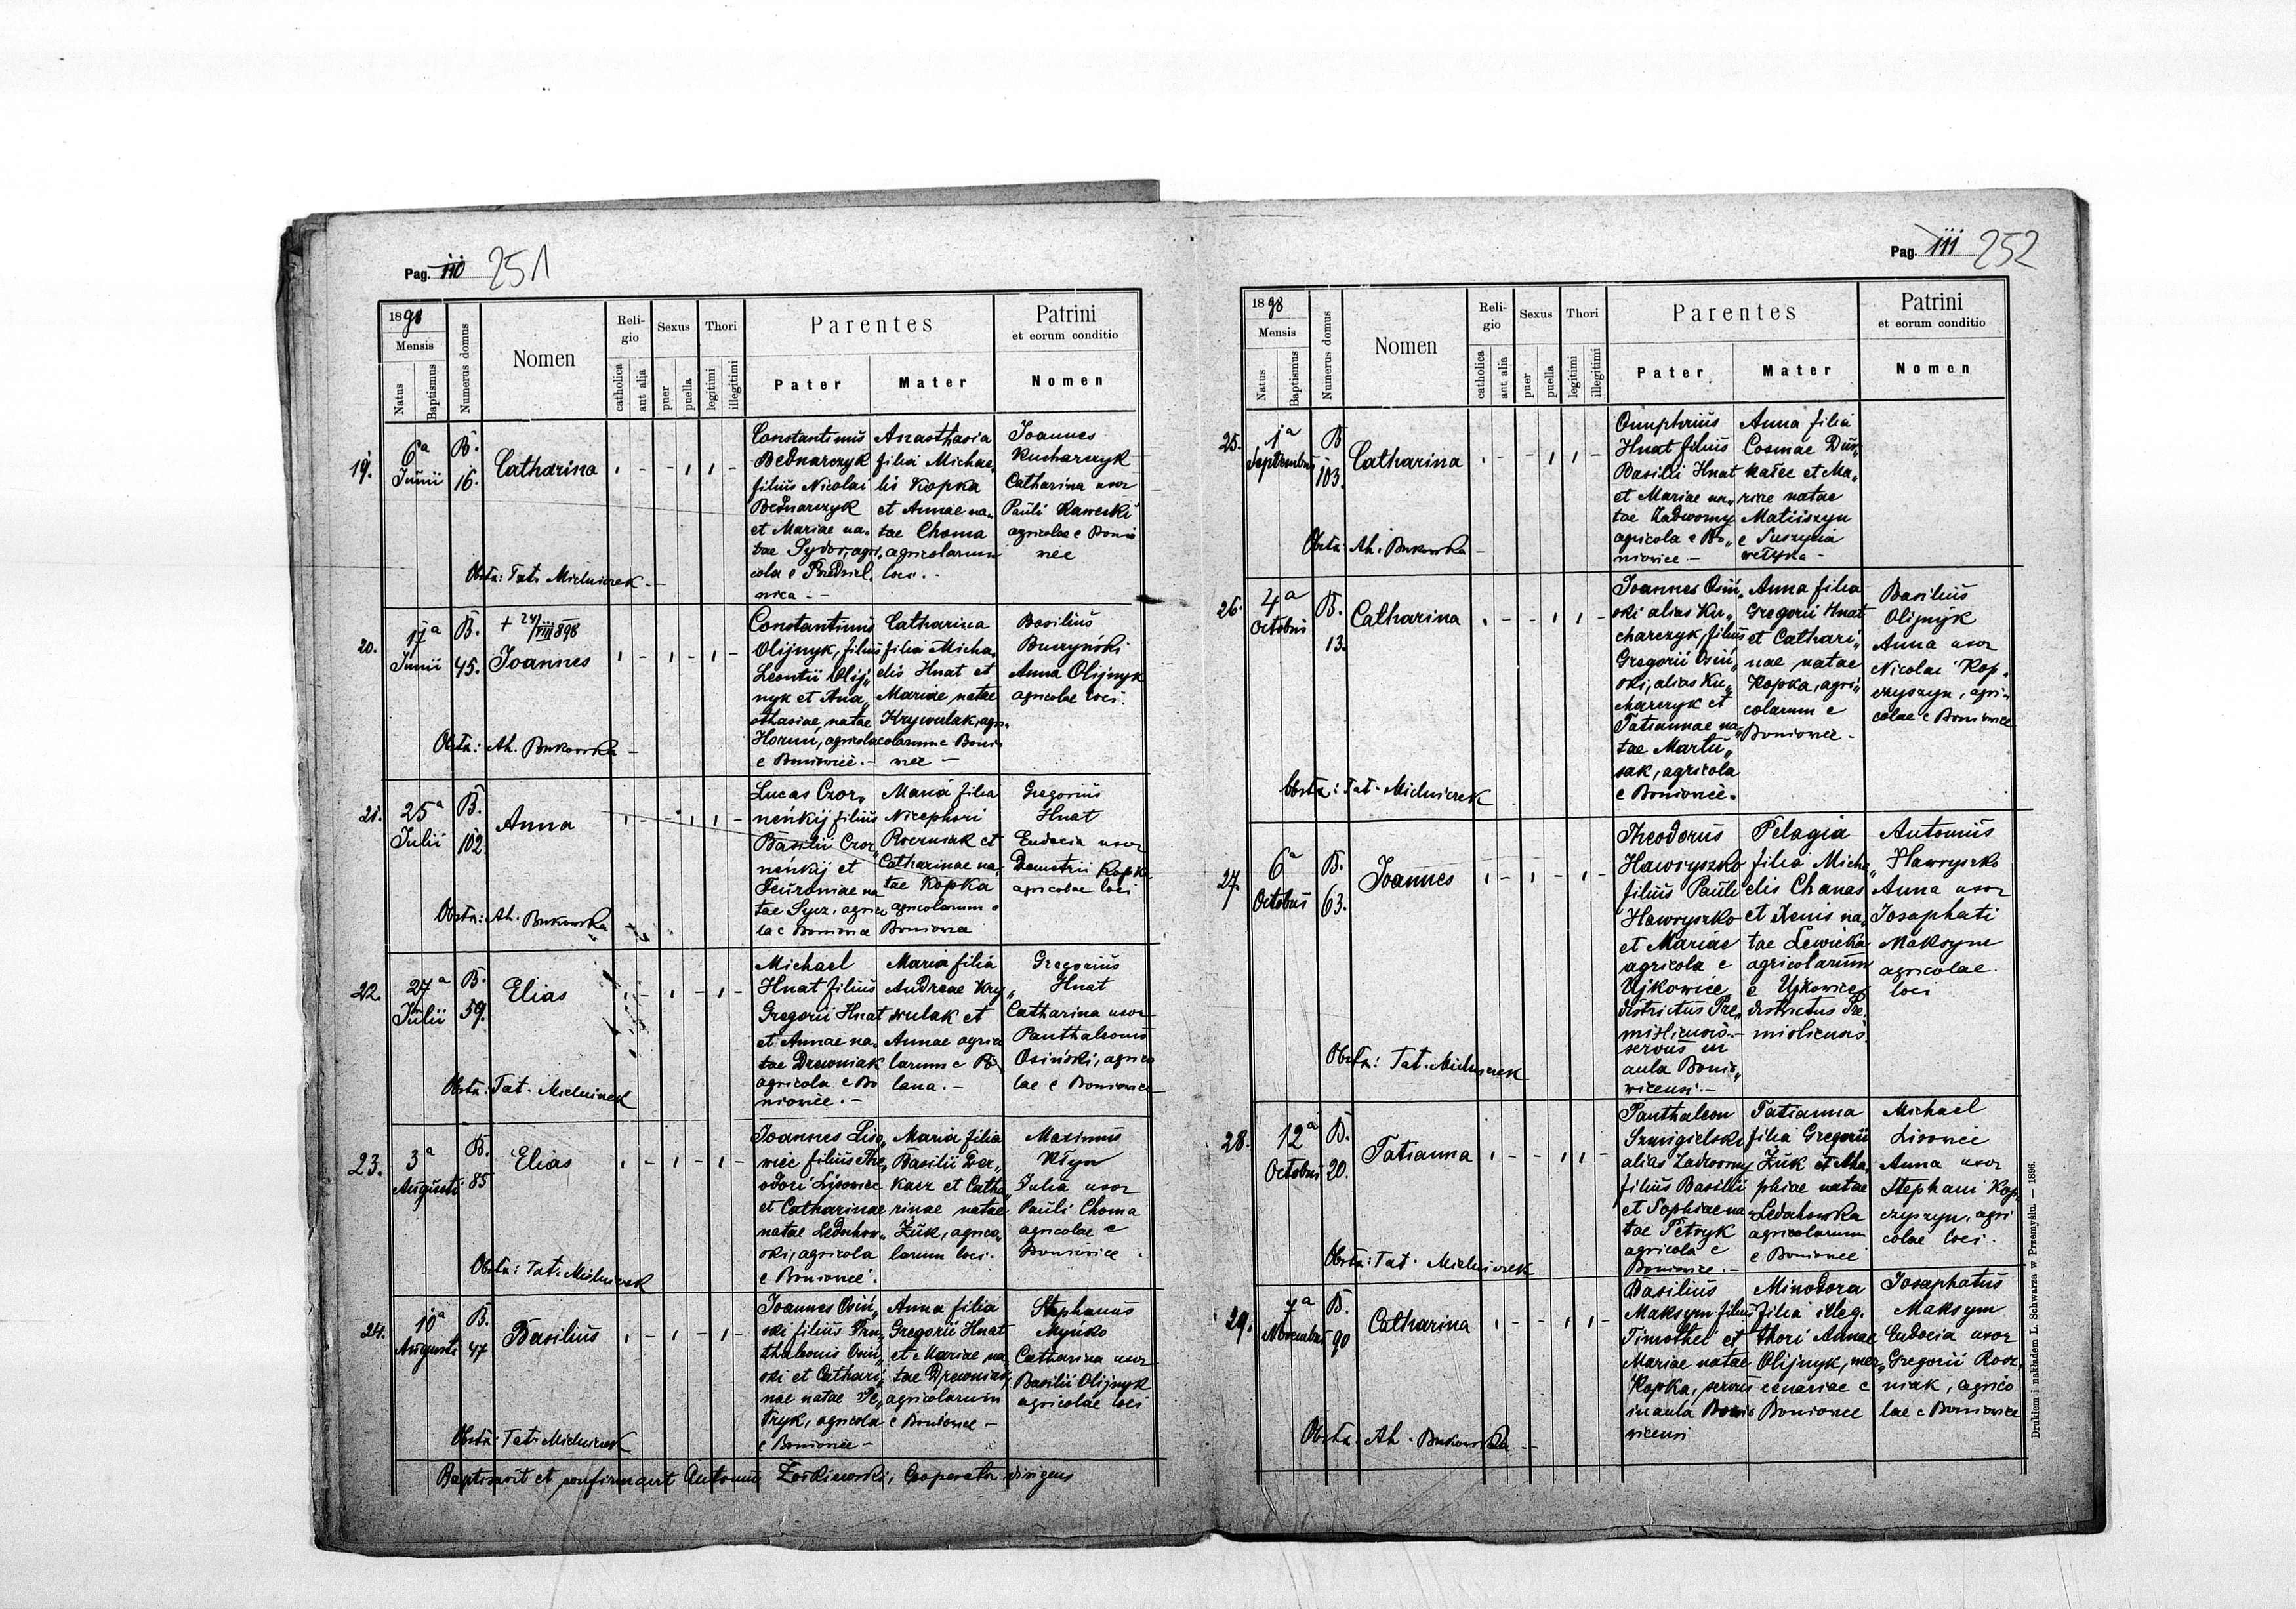 Pag. 110 251
1898
Mensis
Natus
Baptismus
Numerus domus
Nomen
Religio
catholica
aut alia
Sexus
puer
puella
Thori
legitimi
illegitimi
Parentes
Pater
Mater
Patrini
et eorum conditio
Nomen
19.
6a
Junii
B.
16.
Catharina
Constantinus
Bednarczyk
filius Nicolai
Bednarczyk
et Mariae na„
tae Sydor, agri„
cola e
Anasthasia
filia Michae„
lis Kopka
et Annae na„
tae Choma
agricolarum
loci. -
Joannes
Kucharczyk
Catharina uxor
Pauli Raweski
agricolae e Bonio
wice
Obstx: Tat. Mielniczek -
20.
17a
Junii
B.
45.
+ 24/VIII 898
Joannes
Constantinus
Olijnyk, filius
Leontii Olij„
nyk et Ana„
sthasiae, natae
Hornii, agricola
e Boniowice. -
Catharina
filia Micha„
elis Hnat et
Mariae natae
Krywulak, agri„
colarum e Bonio
wice -
Basilius
Buczyński
Anna Olijnyk
agricolae loci.
Obstx: Ah. Bukowska -
21.
25a
Julii
B.
102.
Anna
Lucas Czor„
neńkij filius
Basilii Czor„
neńkij et
Feuroniae na
tae Sycz, agrico
la e Boniowice
Maria filia
Nicephori
Roczniak et
Catharinae na„
tae Kopka
agricolarum e
Boniowice
Gregorius
Hnat
Eudocia uxor
Demetrii Kopka
agricolae loci
Obstx: Ah. Bukowska
22.
27a
Julii
B.
59.
Elias
Michael
Hnat filius
Gregorii Hnat
et Annae na„
tae Drewniak
agricola e Bo
niowice. -
Maria filia
Andreae Kry„
wulak et
Annae agrico
larum e Po
lana. -
Gregorius
Hnat
Catharina uxor
Panthaleonis
Osiński, agrico
lae e Boniowice
Obstx: Tat. Mielniczek
23.
3a
Augusti
B.
85
Elias
Joannes Liso„
wiec filius The„
odori Lisowiec
et Catharinae
natae Ledochow„
ski, agricola
e Boniowice.
Maria filia
Basilii Der„
kacz et Catha„
rinae natae
Żuk, agrico„
larum loci.
Maximus
Kłyn
Julia uxor
Pauli Choma
agricolae e
Boniowice
Obstx: Tat. Mielniczek
24.
10a
Augusti
B.
47
Basilius
Joannes Osiń„
ski filius Pan„
thaleonis Osiń„
ski et Cathari„
nae natae Pe„
tryk, agricola
e Boniowice -
Anna filia
Gregorii Hnat
et Mariae na„
tae Drewniak,
agricolarum
e Boniowice -
Stephanus
Myńko
Catharina uxor
Basilii Olijnyk
agricolae loci
Obstx: Tat. Mielniczek
Baptisavit et confirmavit Antonius Cooperator dirigens
Pag. 111 252
1898
Mensis
Natus
Baptismus
Numerus domus
Nomen
Religio
catholica
aut alia
Sexus
puer
puella
Thori
legitimi
illegitimi
Parentes
Pater
Mater
Patrini
et eorum conditio
Nomen
25.
1a
Septembris
B
103.
Catharina
Onuphrius
Hnat filius
Basilii Hnat
et Mariae na„
tae Zadworny
agricola e Bo„
niowice -
Anna filia
Cosmae Dus„
kałec et Ma„
riae natae
Matiiszyn
e Suszycia
wełyka -
Obstx: Ah. Bukowska -
26.
4a
Octobris
B.
13.
Catharina
Joannes Osiń„
ski alias Ku„
charczyk, filius
Gregorii Osiń„
ski, alias Ku„
charczyk et
Tatiannae na„
tae Martu„
sak, agricola
e Boniowice.
Anna filia
Gregorii Hnat
et Cathari„
nae natae
Kopka, agri„
colarum e
Boniowice -
Basilius
Olijnyk
Anna uxor
Nicolai Kop„
czyszyn, agri„
colae e Boniowice
Obstx: Tat. Mielniczek
27.
6a
Octobris
B.
63.
Joannes
Theodorus
Hawryszko
filius Pauli
Hawryszko
et Mariae
agricola e
Ujkowice
districtus Pre„
misliensis. -
servus in
aula Bonio„
wicensi. -
Pelagia
filia Micha„
elis Chanas
et Xenis na„
tae Lewicka
agricolarum
e Ujkowice
districtus Pre„
misliensis
Antonius
Hawryszko
Anna uxor
Josaphati
Maksym
agricolae
loci
Obstx: Tat. Mielniczek
28.
12a
Octobris
B.
20.
Tatianna
Panthaleon
Szmigielski
alias Zadworny
filius Basilii
et Sophiae na„
tae Petryk
agricola e
Boniowice. -
Tatianna
filia Gregorii
Żuk et Aha„
phiae natae
Ledochowska
agricolarum
e Boniowice
Michael
Lisowiec
Anna uxor
Stephani Kop„
czyszyn, agri
colae loci.
Obstx: Tat. Mielniczek
29.
7a
Novembris
B.
90
Catharina
Basilius
Maksym filius
Timothei et
Mariae natae
Kopka, servus
in aula Bonio
wicensi
Minodora
filia illeg.
thori Annae
Olijnyk, mer„
cenariae e
Boniowice
Josaphatus
Maksym
Eudocia uxor
Gregorii Rocz„
niak, agrico
lae e Boniowice
Obstx: Ah. Bukowska -
Drukiem i nakładem L. Schwarza w Przemyślu. — 1896.